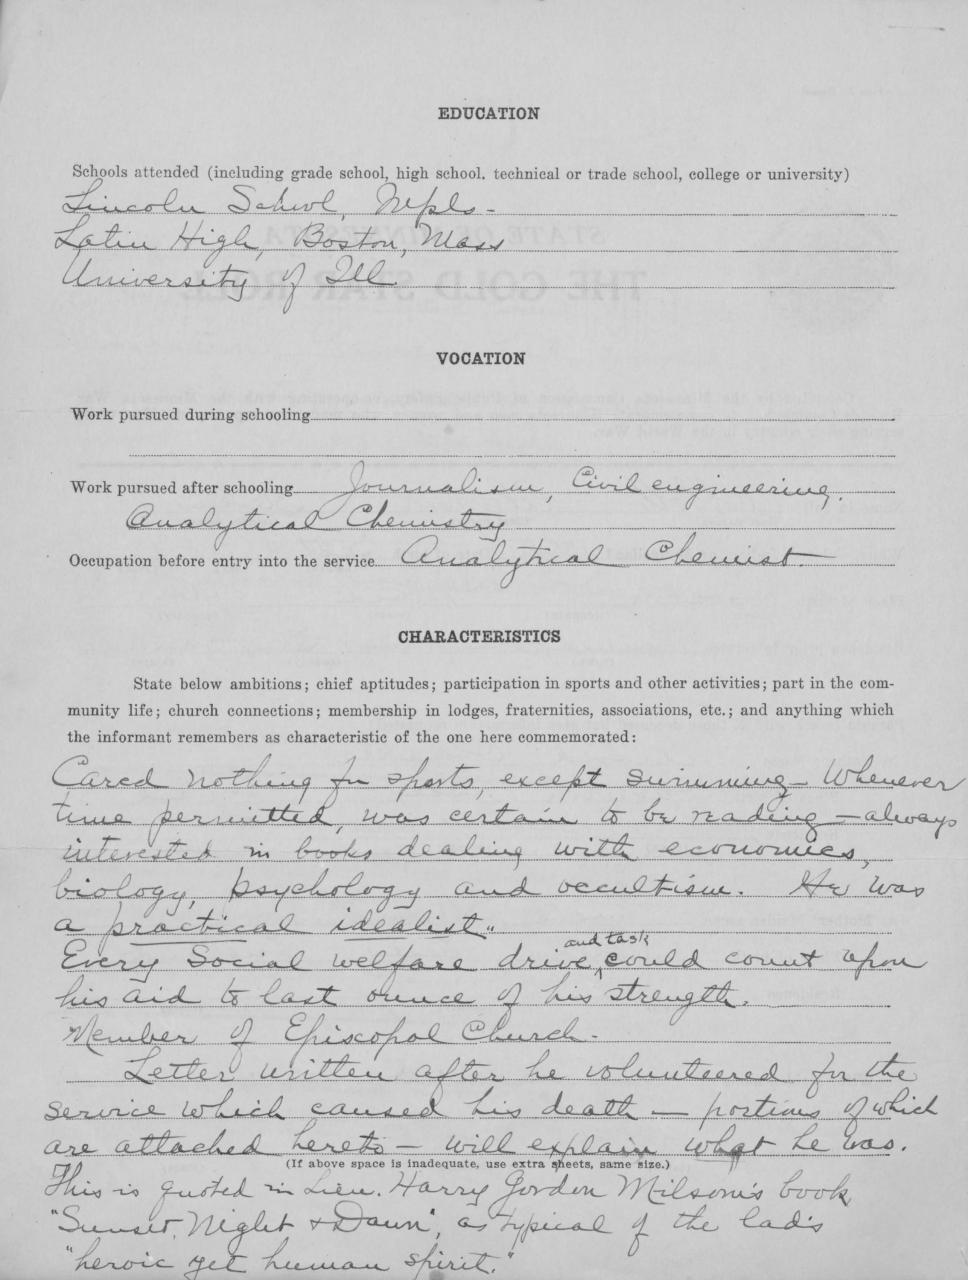 EDUCATION
Schools attended (including grade school, high school. technical or trade school, college or university)
Lincoln School, Mpls-
Latin High, Boston, Mass
University of Ill.
VOCATION
Work pursued during schooling
Work pursued after schooling Journalism, Civil engineering,
Analytical Chemistry
Occupation before entry into the service Analytical Chemist.
CHARACTERISTICS
State below ambitions; chief aptitudes; participation in sports and other activities; part in the com-
munity life; church connections; membership in lodges, fraternities, associations, etc.; and anything which
the informant remembers as characteristic of the one here commemorated:
Cared nothing for sports, except swimming - Whenever
time permitted, was certain to be reading - always
interested in books dealing with economics,
biology, psychology and occultism. He was
a practical idealist."
Every Social welfare drive, and task could count upon
his aid to last ounce of his strength.
Member of Episcopal Church.
Letter written after he volunteered for the
service which caused his death - portions of which
are attached hereto - will explain what he was.
(If above space is inadequate, use extra sheets, same size.)
This is quoted in Lieu. Harry Gordon Milsom's book
"Sunset, Night & Dawn", as typical of the lad's
"heroic yet human spirit."